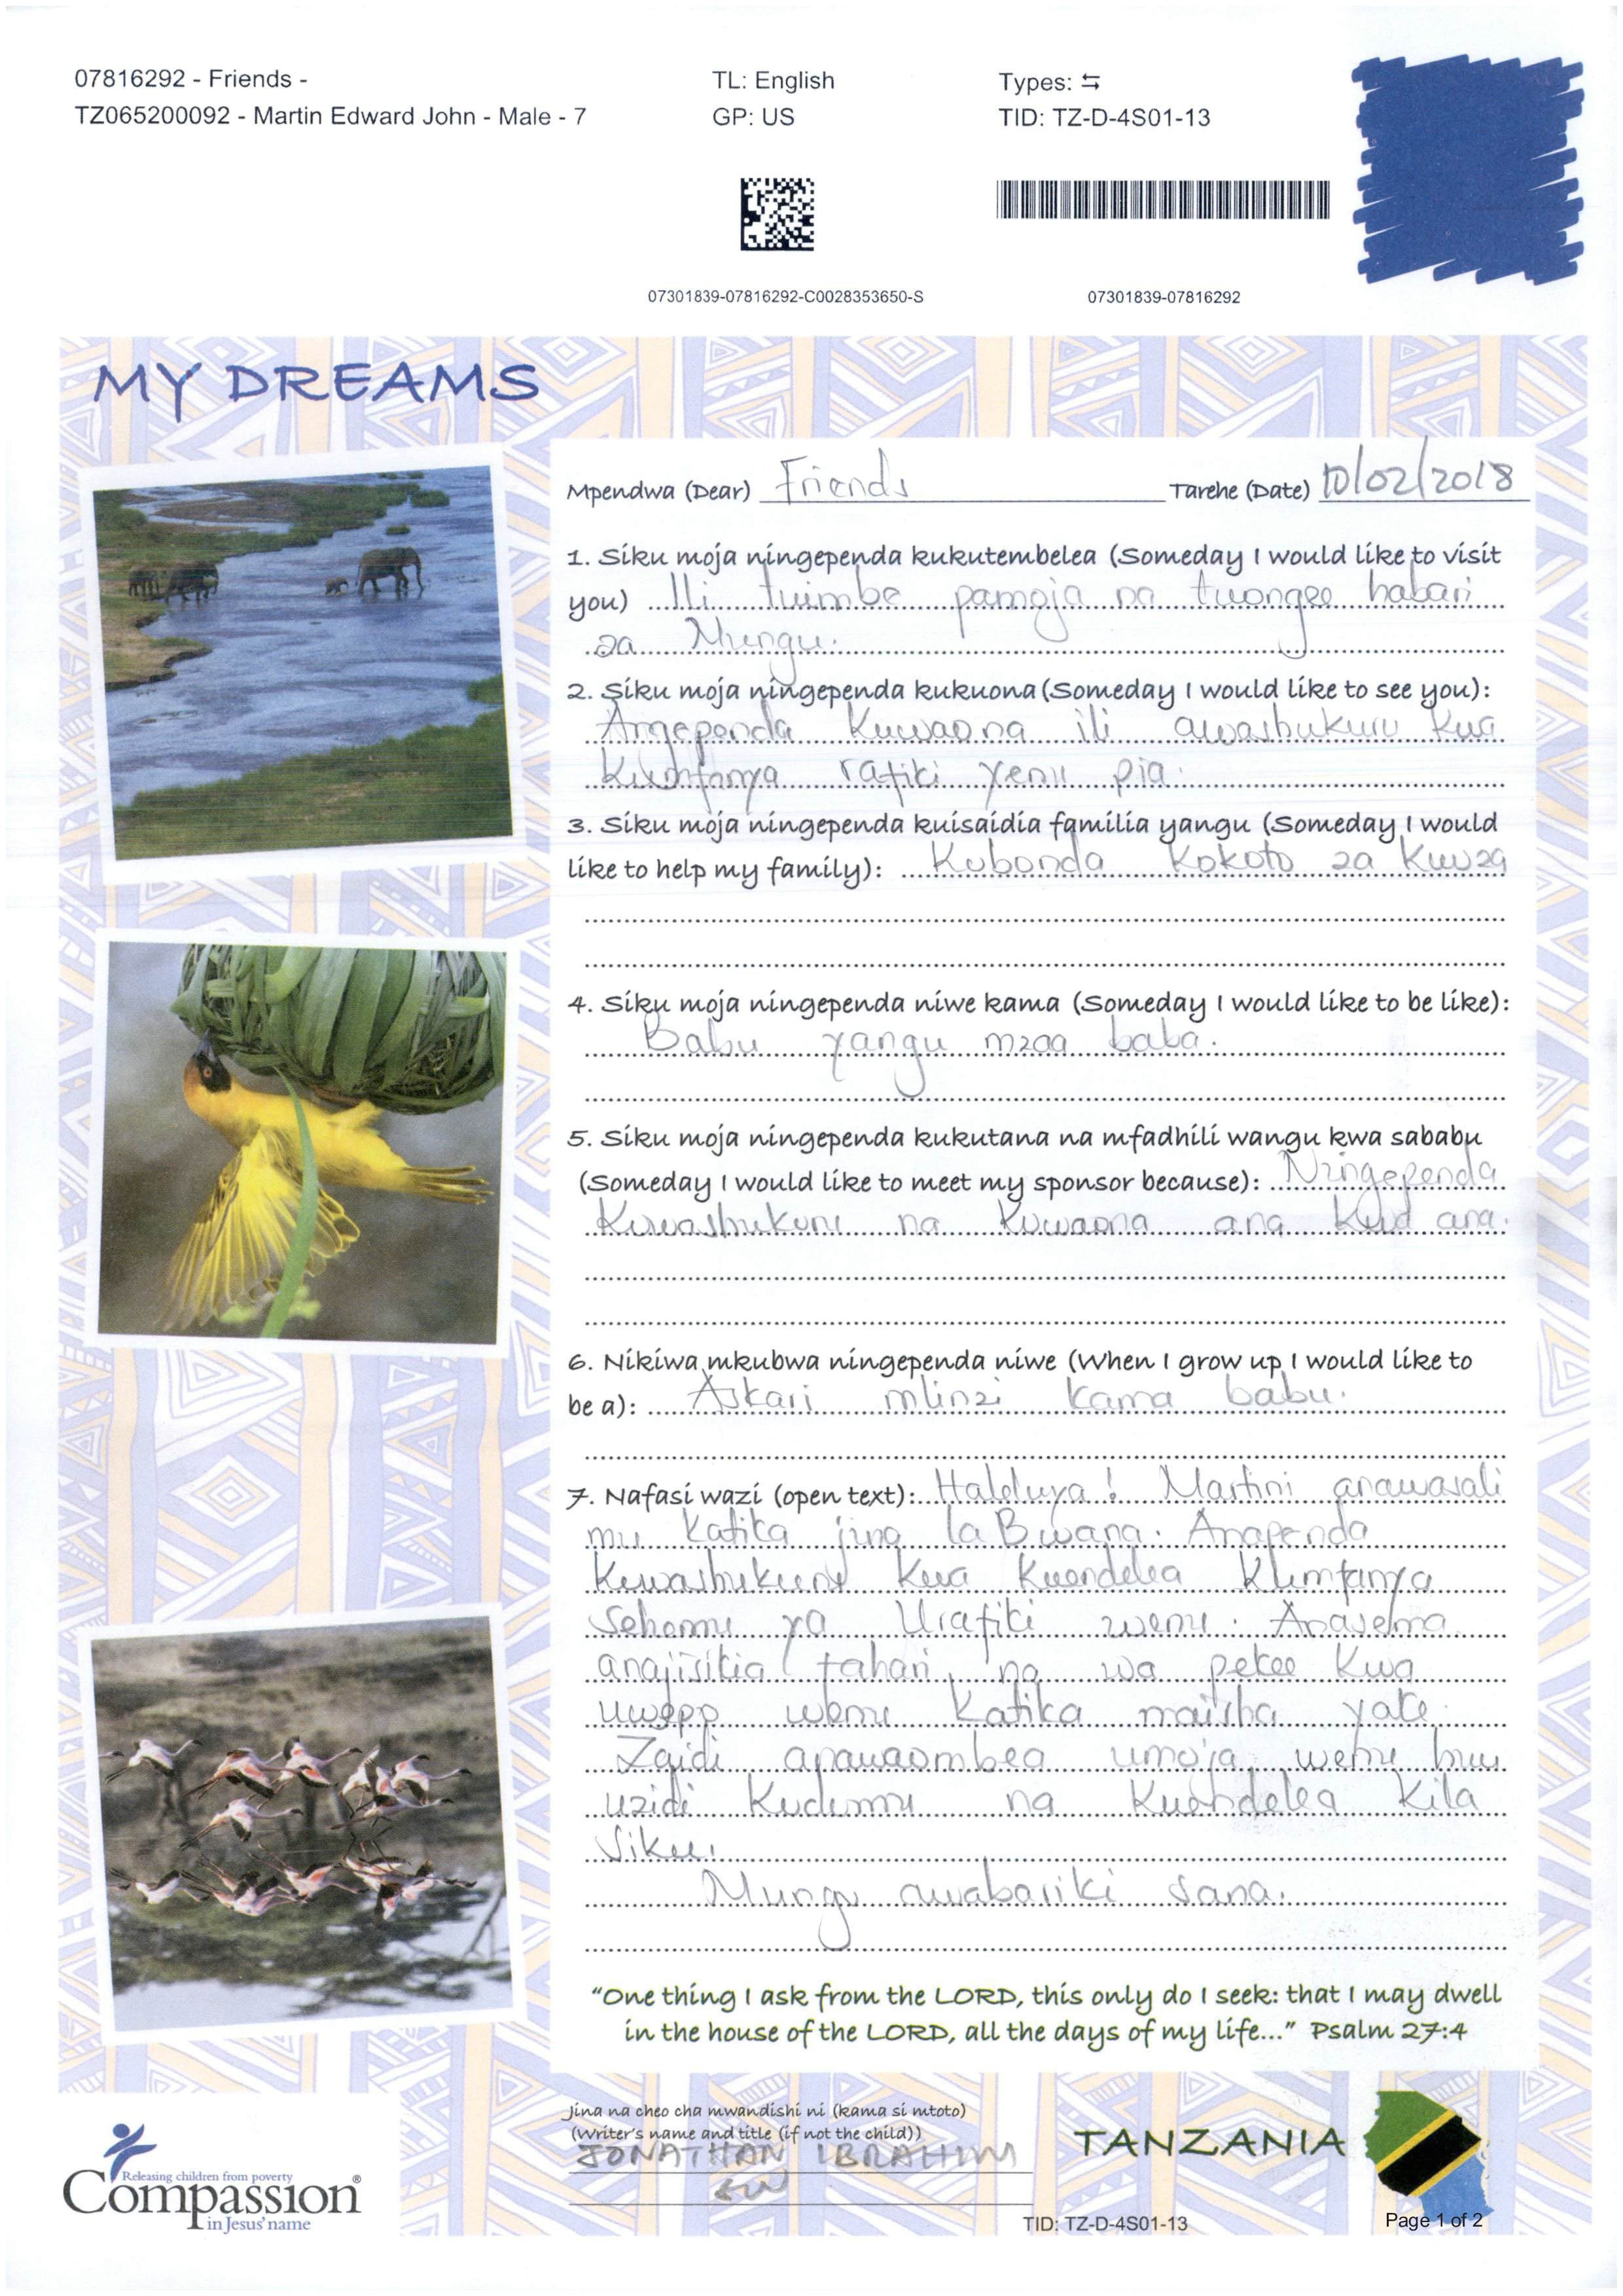 07816292 - Friends -
TZ065200092 - Martin Edward John - Male - 7
TL: English
GP: US
Types: ⇆
TID: TZ-D-4S01-13
07301839-07816292-C0028353650-S
07301839-07816292
MY DREAMS
Mpendwa (Dear) Friends Tarehe (Date) 10/02/2018
1. Siku moja ningependa kukutembelea (Someday I would like to visit
you) Ili tuimbe pamoja na tuongee habari
za Mungu.
2. Siku moja ningependa kukuona (Someday I would like to see you):
Angependa kuwaona ili awashukuru kwa
kumfanya rafiki yenu pia.
3. Siku moja ningependa kuisaidia familia yangu (Someday I would
like to help my family): Kubonda kokoto za kuuza
4. Siku moja ningependa niwe kama (Someday I would like to be like):
Babu yangu mzaa baba.
5. Siku moja ningependa kukutana na mfadhili wangu kwa sababu
(Someday I would like to meet my sponsor because): Ningependa
kuwashukuru na kuwaona ana kwa ana.
6. Nikiwa mkubwa ningependa niwe (When I grow up I would like to
be a): Askari mlinzi kama babu.
7. Nafasi wazi (open text): Haleluya! Martini anawasali
mu katika jina la Bwana. Anapenda
kuwashukuru kwa kuendelea kumfanya
sehemu ya Urafiki wenu. Anasema
anajisikia fahari na wa pekee kwa
uwepo wenu katika maisha yake.
Zaidi anawaombea umoja wenu huu
uzidi kudumu na kuendelea kila
siku.
Mungu awabariki sana.
"One thing I ask from the LORD, this only do I seek: that I may dwell
in the house of the LORD, all the days of my life..." Psalm 27:4
Jina na cheo cha mwandishi ni (kama si mtoto)
(Writer's name and title (if not the child))
JONATHAN IBRAHIM
Releasing children from poverty
Compassion®
in Jesus' name
TANZANIA
TID: TZ-D-4S01-13
Page 1 of 2